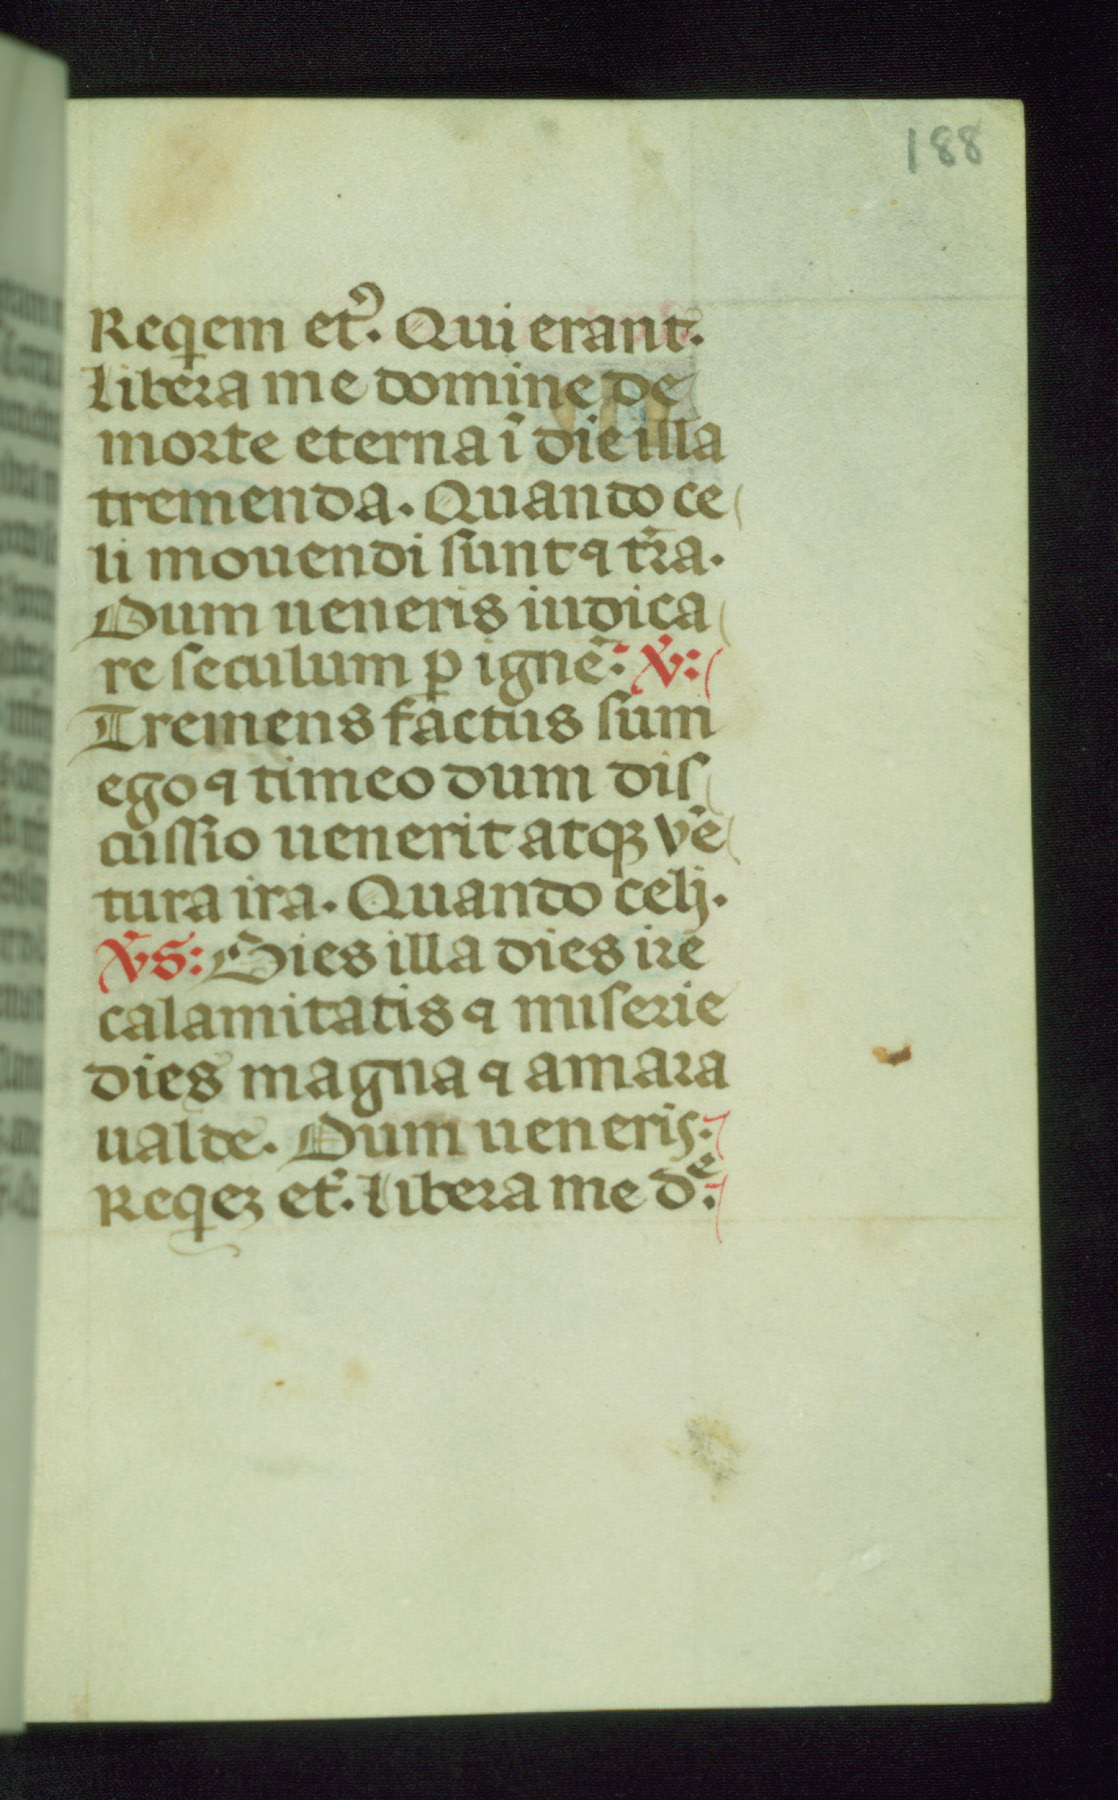 188
Reqem et᷒. Qui erant.
Libera me domine de
morte eterna ī die illa
tremenda. Quando ce
li mouendi sunt ꝯ tr̄a.
Dum ueneris iudica
re seculum ꝑ ignē. V̄:
Tremens factus sum
ego ꝯ timeo dum dis
cussio uenerit atqꝫ vē
tura ira. Quando celj.
V̄s: Dies illa dies ire
calamitatis ꝯ miserie
dies magna ꝯ amara
ualde. Dum ueneris.
Reqeꝫ et̄. Libera me dᵉ.